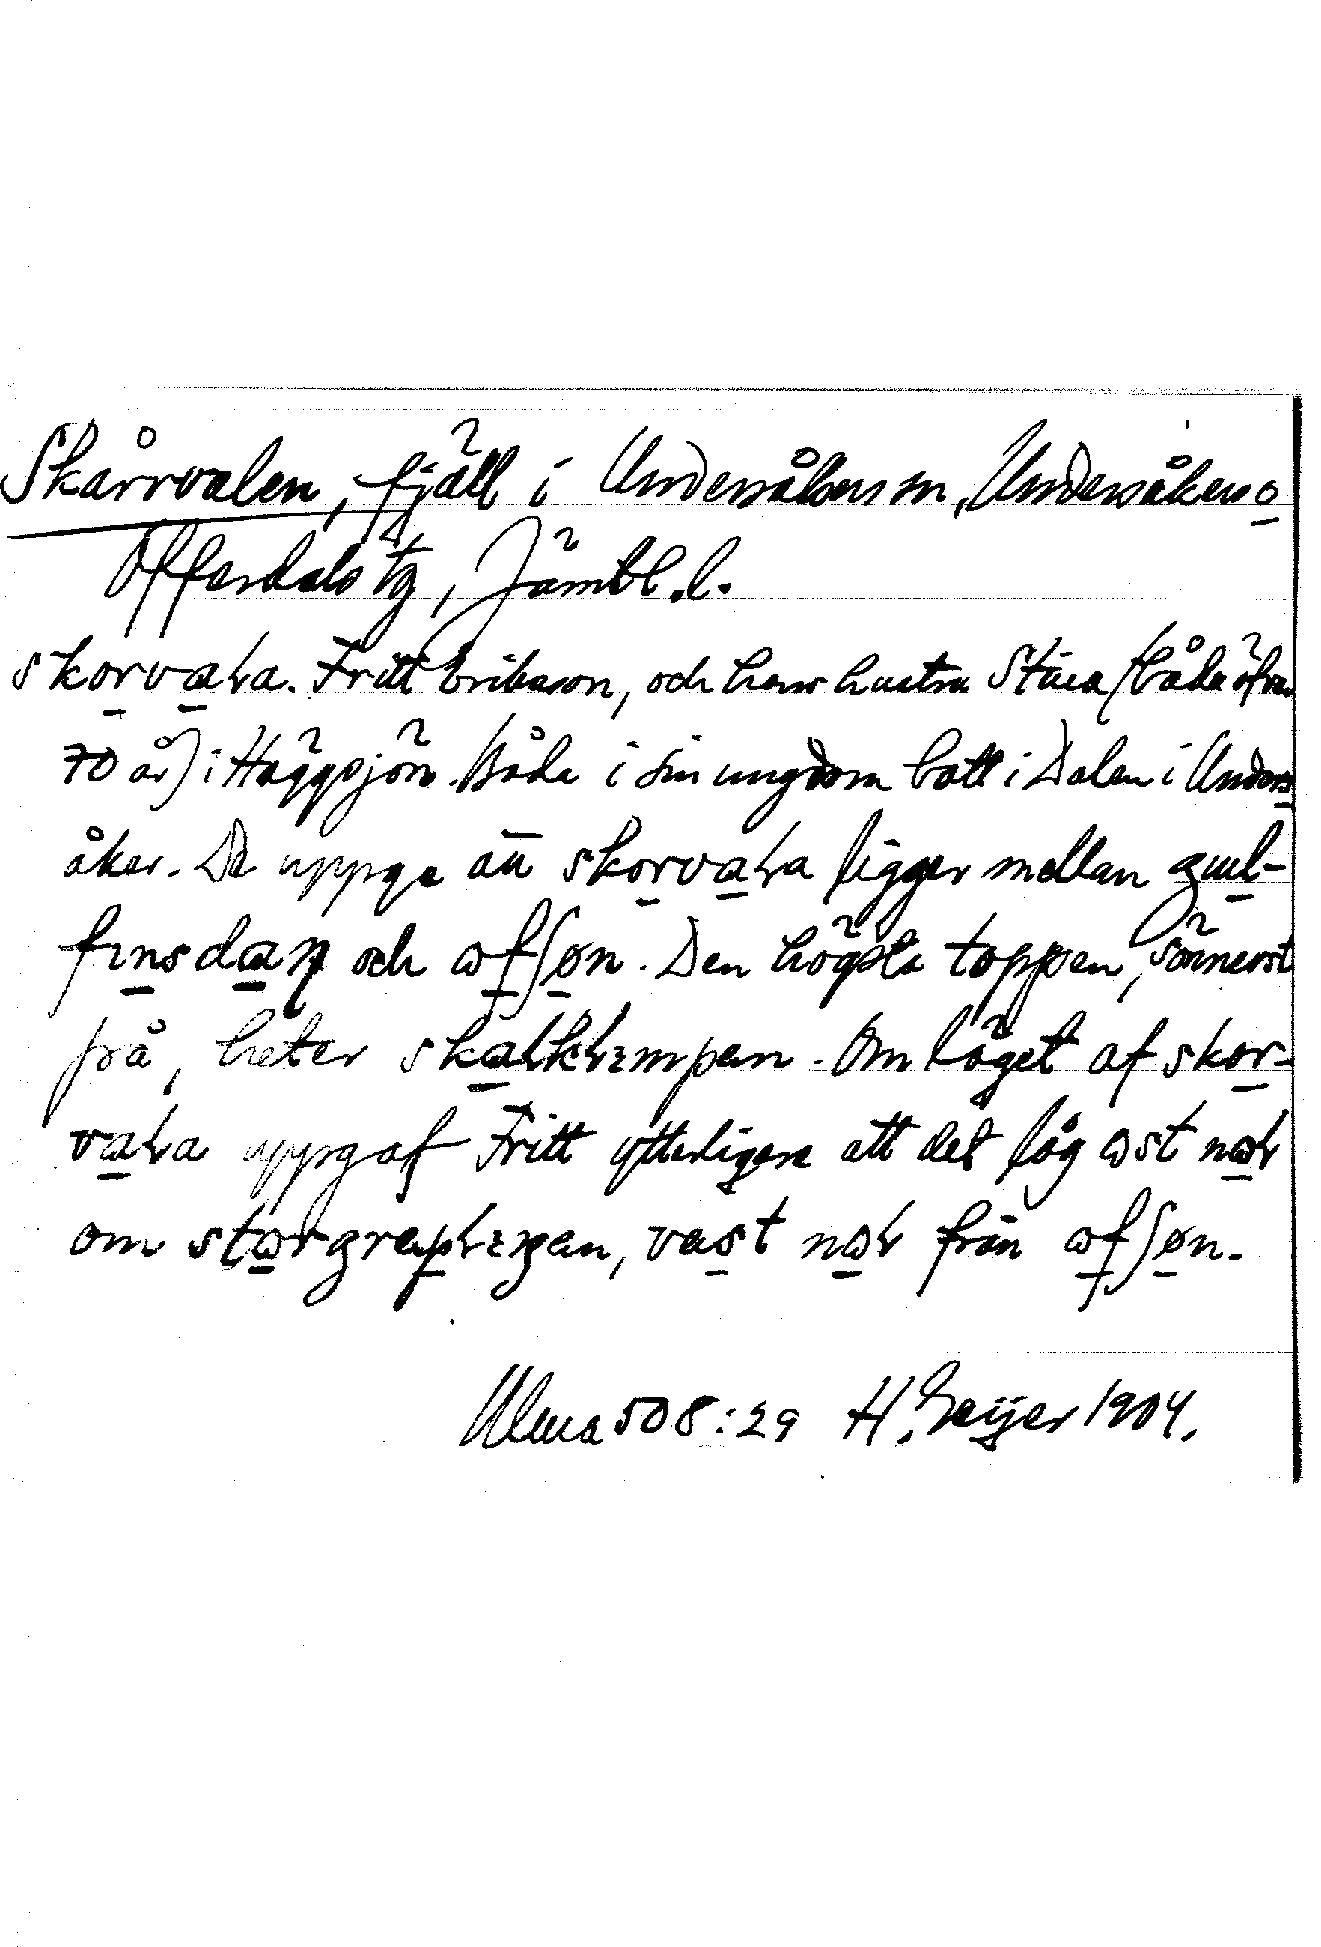 Skårrvalen, fjäll i Undersåkers sn, Undersåkers o
Offerdals tg, Jämtl. l.
skorvaɬa. Fritt Eriksson, och hans hustru Stina (båda öfver
70 år) i Häggsjön. Båda i sin ungdom bott i Dalen i Unders
åker. De uppge att skorvaɬa ligger mellan gɯɬ-
finsdaɳ och ɷfʃøn. Den högsta toppen, sönnerst
frå, heter skaɬkɬɛmpan. Om läget af skor-
vaɬa uppgaf Fritt ytterligare att det låg ɷst nɷɬ
om stɷrgrep, vast nɷɬ från ɷfʃøn.
Ulma 508:29 H. Geijer 1904.